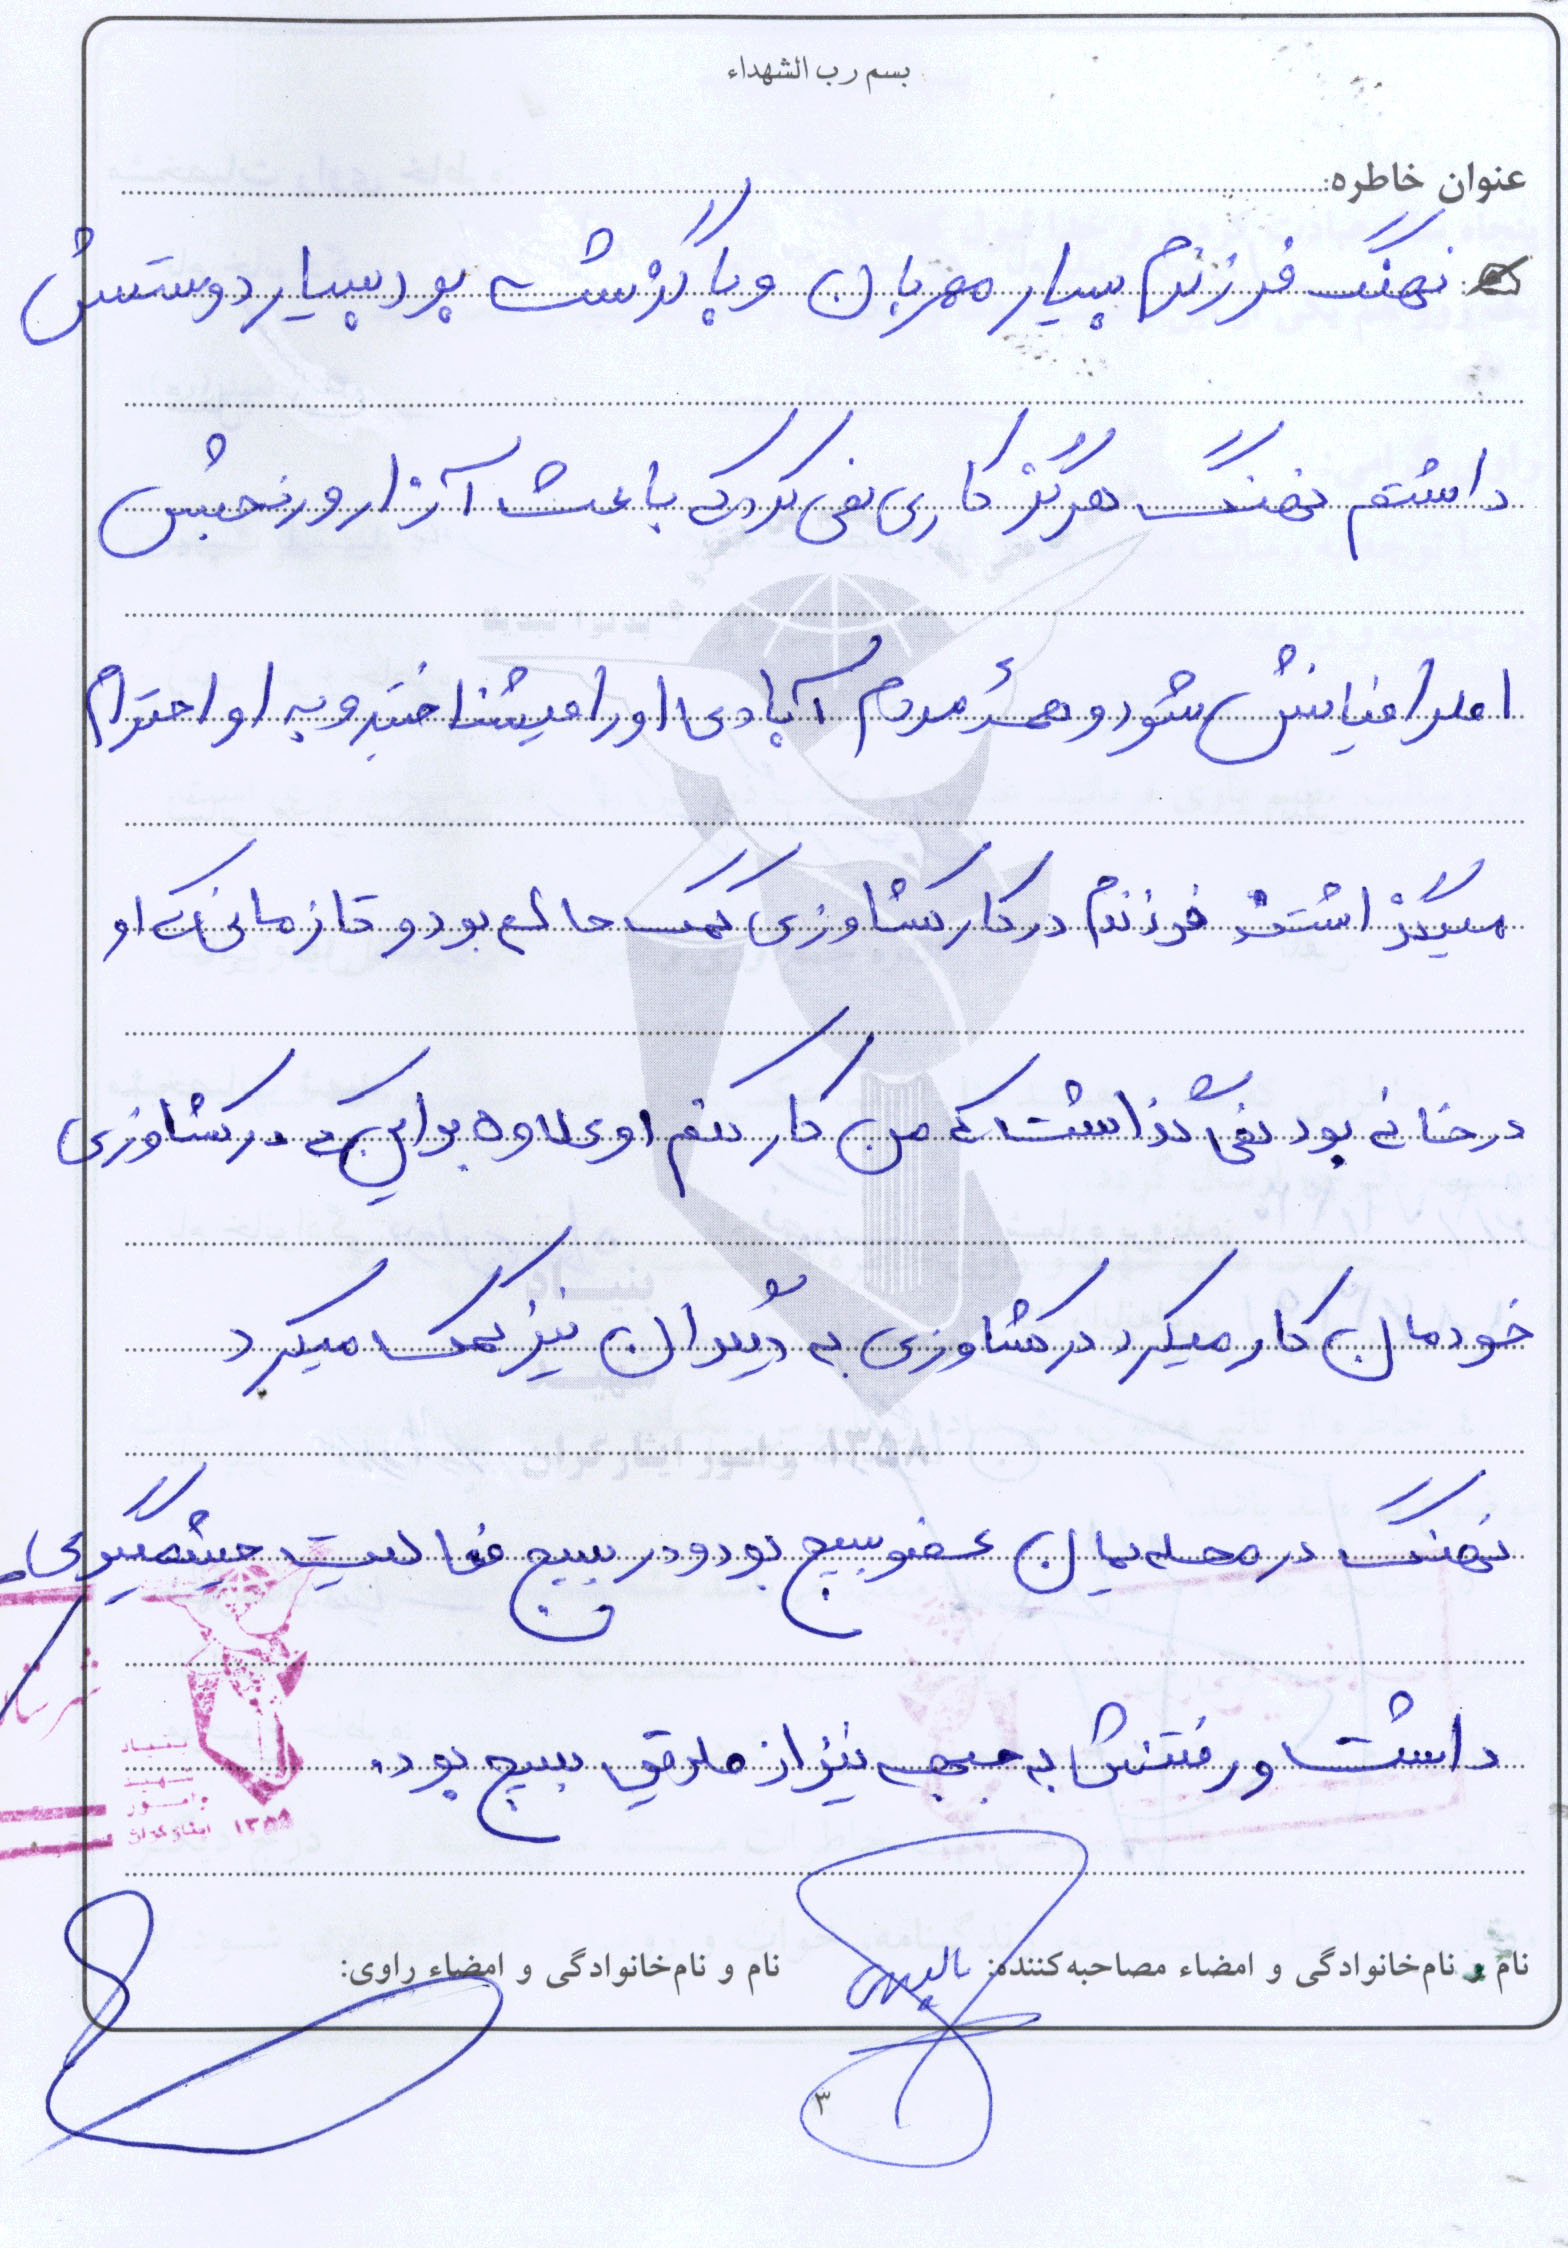 بسم رب الشهداء
عنوان خاطره:
نهنگ فرزندم بسیار مهربان و با گذشت بود بسیار دوستش
داشتم نهنگ هرگز کاری نمی کرد که باعث آزار و رنجش
اطرافیانش شود و همۀ مردم آبادی او را میشناختند و به او احترام
میگذاشتند فرزندم در کار کشاورزی کمک حالم بود و تا زمانی که او
در خانه بود نمی گذاشت که من کار کنم او علاوه بر این که در کشاورزی
خودمان کار میکرد در کشاورزی به دیگران نیز کمک میکرد
نهنگ در محله یمان عضو بسیج بود و در بسیج فعالیت چشمگیری
داشت و رفتنش به جبهه نیز از طرق بسیج بود.
بنیاد
شهید
و امور
ایثارگران ۱۳۵۸
نام و نام‌خانوادگی و امضاء مصاحبه‌کننده:
نام و نام‌خانوادگی و امضاء راوی:
۳